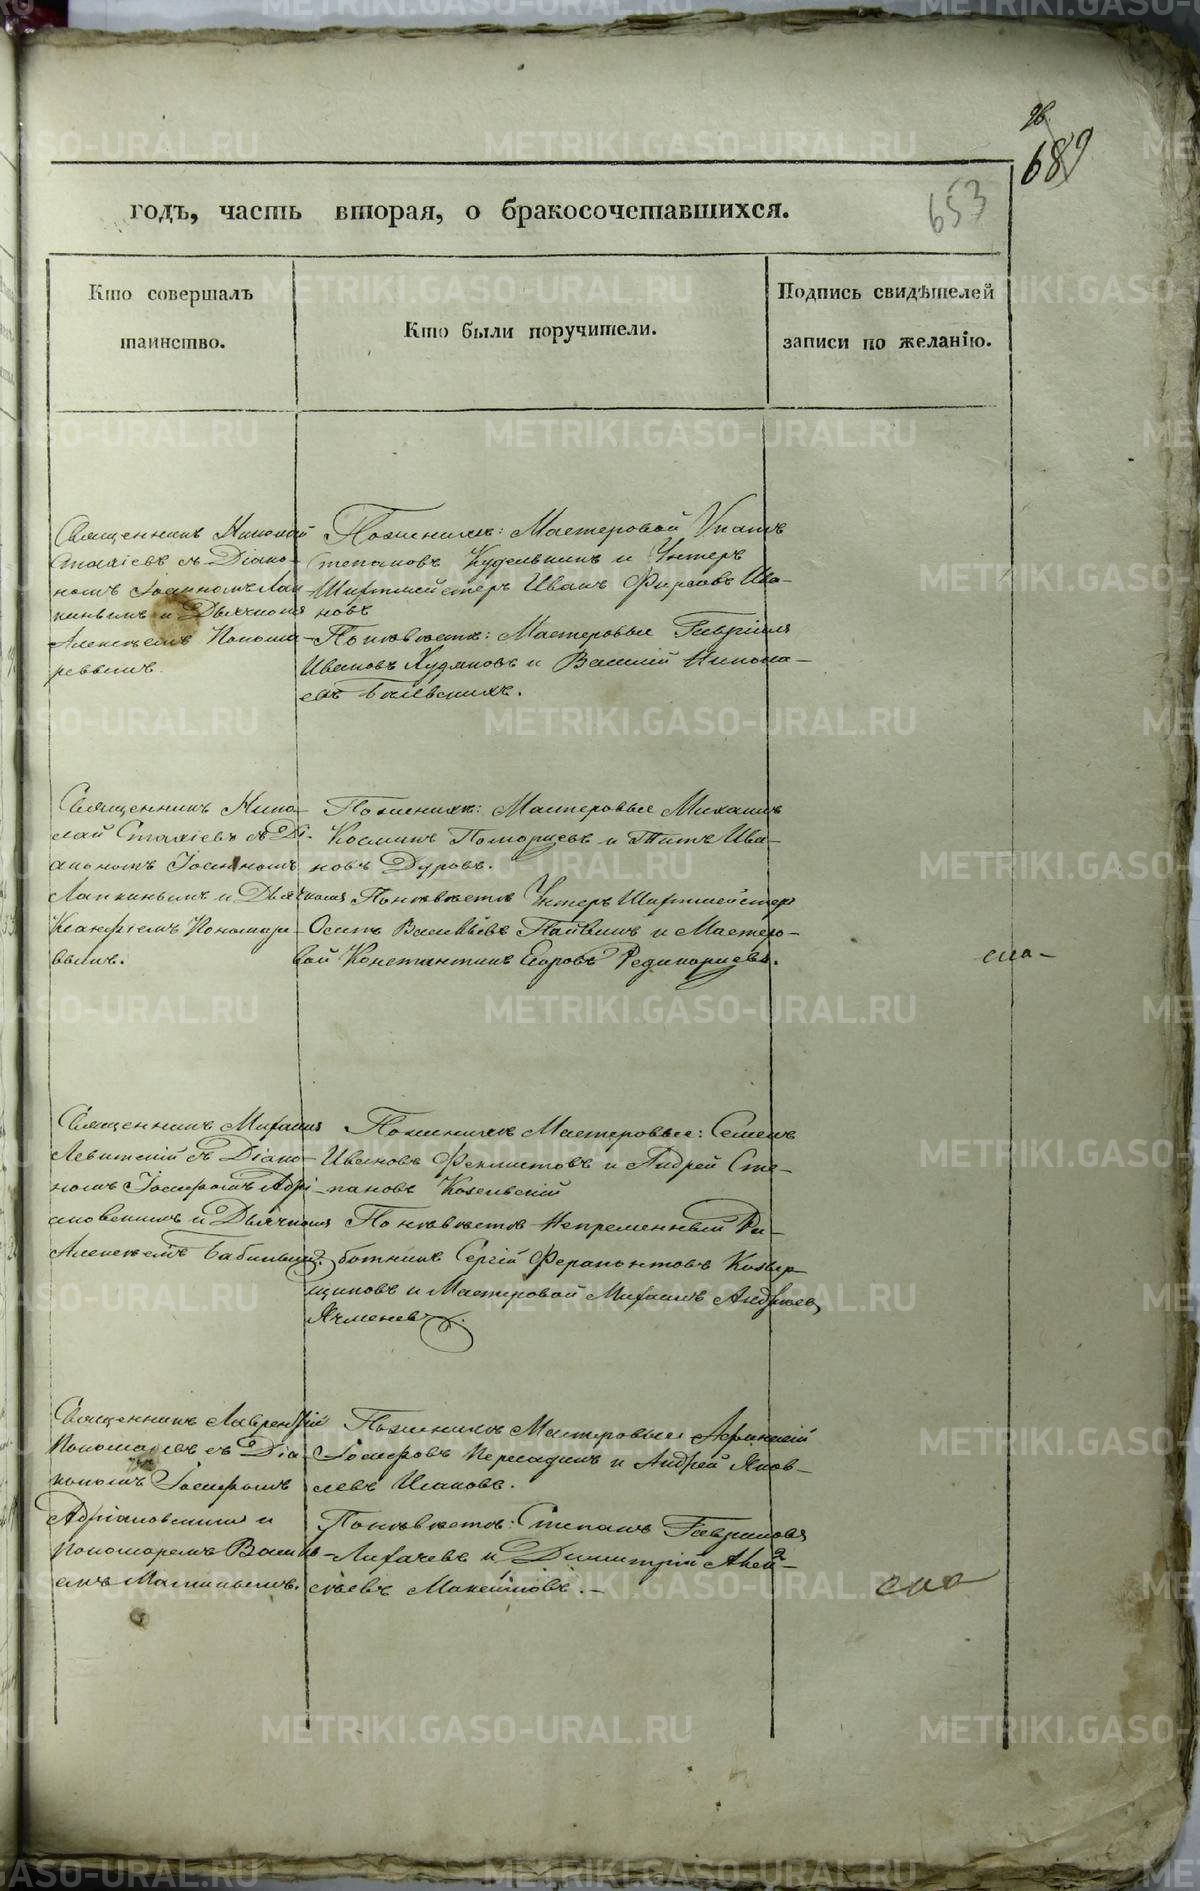 689
653
годъ, часть вторая, о бракосочетавшихся.
Кто совершалъ
таинство.
Кто были поручители.
Подпись свидѣтелей
записи по желанію.
Священникъ Николай
Стахіевъ съ Діако-
номъ Іоанномъ Лап
кинымъ и Дьячкомъ
Алексѣемъ Понома-
ревымъ.
По женихѣ: Мастеровой Ипатъ
Степановъ Куделькинъ и Унтеръ
Шихтмейстеръ Иванъ Фирсовъ Ива-
новъ
По невѣстѣ: Мастеровые Гавріилъ
Ивановъ Худяковъ и Василій Никола-
евъ
Священникъ Нико-
лай Стахіевъ съ Ді-
акономъ Іоанномъ
Лапкинымъ и Дьячкомъ
Пономаре-
вымъ.
По женихѣ: Мастеровые Михаилъ
Косминъ и Титъ Ива-
новъ Дуровъ.
По невѣстѣ Унтеръ Шихтмейстеръ
Осипъ Васильевъ и Мастеро-
вой Константинъ Егоровъ Редикорцевъ.
Священникъ Михаилъ
Левитскій съ Діако-
номъ Іосифомъ Адрі-
ановскимъ и Дьячкомъ
Алексѣемъ Бабинымъ.
По женихѣ Мастеровые: Семенъ
Ивановъ Феклистовъ и Андрей Сте-
пановъ Козельскій
По невѣстѣ Непременный Ра-
ботникъ Сергій Ферапонтовъ Козыр-
щиковъ и Мастеровой Михаилъ Андреев
Ячменев.
Священникъ Лаврентій
Пономаревъ съ Діа
кономъ Іосифомъ
Адріановскимъ и
Пономаремъ Васил-
емъ
По женихѣ Мастеровые:
Іосифовъ и Андрей Яков-
левъ Исаковъ.
По невѣстѣ: Степанъ Гавриловъ
Лихачевъ и Димитрій
METRIKI.GASO-URAL.RU